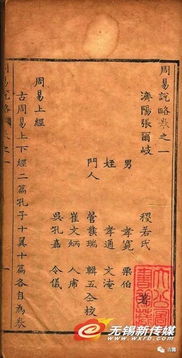 周易說略卷之一
濟陽張爾岐 稷若氏 著
男 孝寬 栗伯
姪 孝通 文淹
門人 其瑞 輯五 仝校
崔文炳 人虎
吳孔嘉 令儀
周易上經
古周易上下經二篇孔子十翼十篇各自為卷
周易說略
无锡新传媒
WXRB.COM